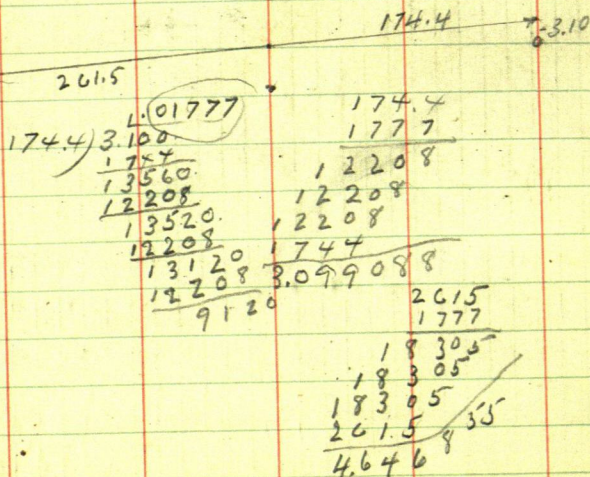 174.4
-3.10
261.5
1.01777
174.4)3.100
1744
13560
12208
13520
12208
13120
12208
9120
174.4
1777
12208
12208
12208
1744
3.099088
2615
1777
18305
18305
18305
2615
4.646855